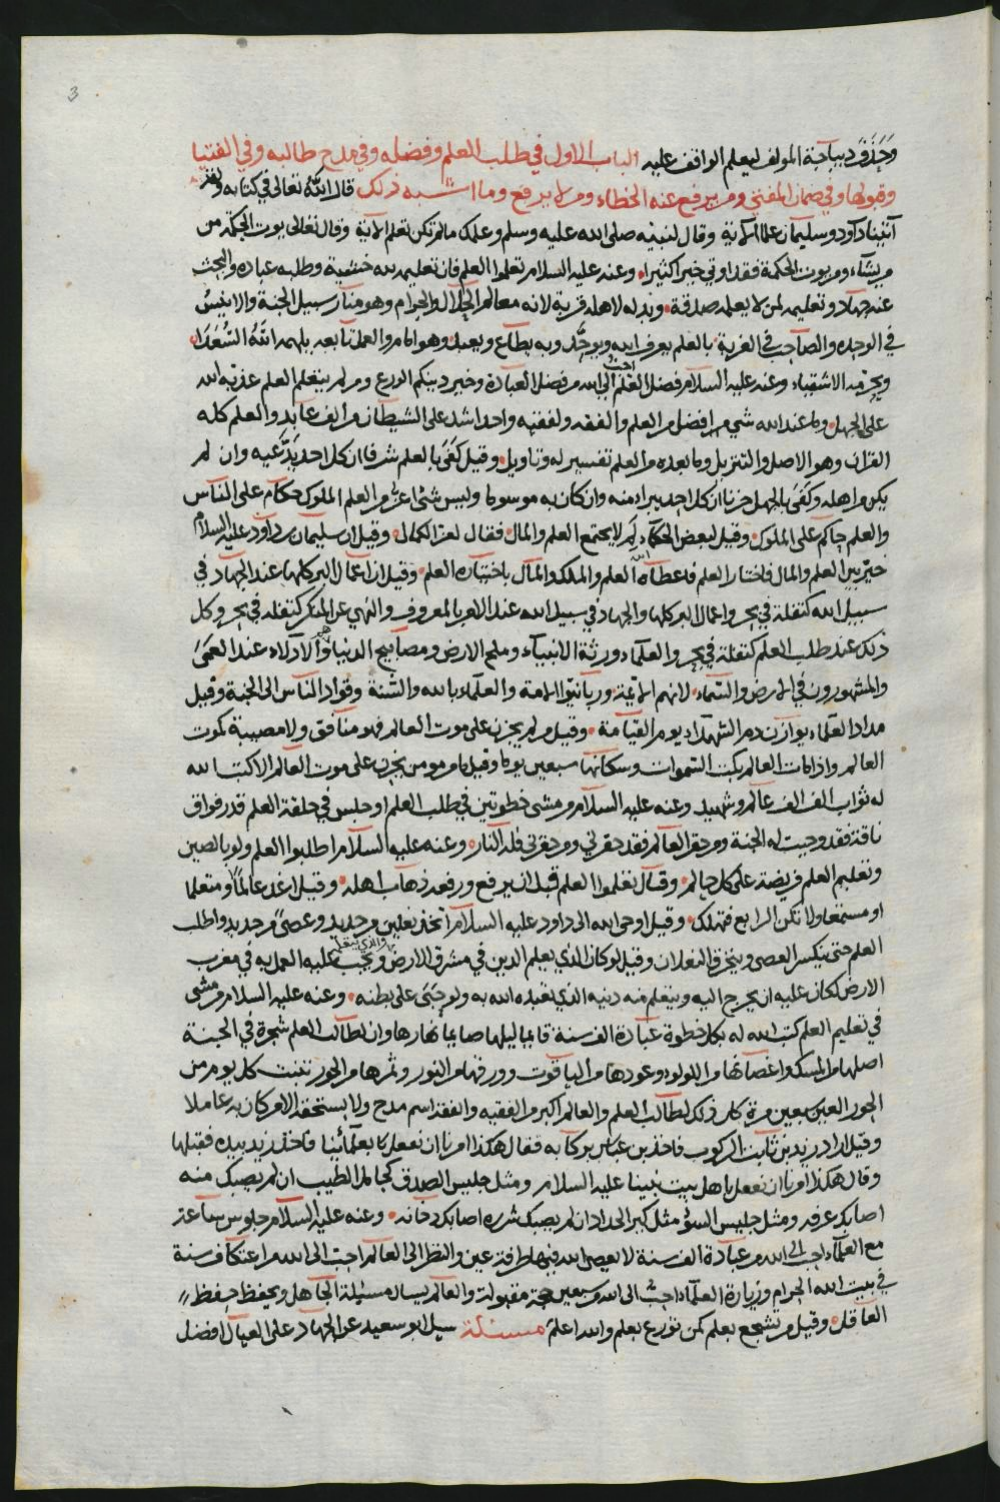 3
وحذف ديباجة المولف ليعلم الواقف عليه الباب الاول في طلب العلم وفضله وفي مدح طالبه وفي الفتيا
وقبولها وفي ضمان المفتي ومن يرفع عنه الخطاء ومن لا يرفع وما اشبه ذلك قال الله تعالى في كتابه ولقد
آتينا داود وسليمان علما الآية وقال لنبيه صلى الله عليه وسلم وعلمك ما لم تكن تعلم الآية وقال تعالى يوت الحكمة من
من يشاء ومن يوت الحكمة فقد اوتي خيرا كثيرا وعنه عليه السلام تعلموا العلم فان تعليمه لله خشية وطلبه عبادة والبحث
عنه جهاد وتعليمه لمن لا يعلمه صدقة وبذله لاهله قربة لانه معالم الحلال والحرام وهو منار سبيل الجنة والانيس
في الوحدة والصاحب في الغربة بالعلم يعرف الله ويوحد وبه يطاع ويعبد وهو امام والعمل تابعه يلهمه الله السعداء
ويحرمه الاشقياء وعنه عليه السلام فضل العلم احب الى الله من فضل العبادة وخير دينكم الورع ومن لم يتعلم العلم عذبه الله
على الجهل وما عند الله شي افضل من العلم والفقه ولفقيه واحد اشد على الشيطان من الف عابد والعلم كله
القران وهو الاصل والتنزيل وما بعده من العلم تفسير له وتاويل وقيل كفى بالعلم شرفا ان كل احد يدعيه وان لم
يكن من اهله وكفى بالجهل حزنا ان كل احد يبرا منه وان كان به موسوما وليس شئ اعز من العلم الملوك حكام على الناس
والعلم حاكم على الملوك وقيل لبعض الحكماء لم لا يجتمع العلم والمال فقال لعز الكمال وقيل ان سليمان بن داود عليه السلام
خير بين العلم والمال فاختار العلم فاعطاه الله العلم والملك والمال باختياره العلم وقيل ان اعمال البر كلها عند الجهاد في
سبيل الله كتفلة في بحر واعمال البر كلها والجهاد في سبيل الله عند الامر بالمعروف والنهي عن المنكر كتفلة في بحر وكل
ذلك عند طلب العلم كتفلة في بحر والعلماء ورثة الانبياء وملح الارض ومصابيح الدنيا وهم الادلاء عند العمى
والمشهورون في الارض والسماء لانهم الائمة وربانيوا الامة والعلماء بالله والسنة وقواد الناس الى الجنة وقيل
مداد العلماء يوازن دم الشهداء يوم القيامة وقيل من لم يحزن على موت العالم فهو منافق ولا مصيبة كموت
العالم واذا مات العالم بكت السموات وسكانها سبعين يوما وقيل ما من مومن يحزن على موت العالم الا كتب الله
له ثواب الف الف عالم وشهيد وعنه عليه السلام من مشى خطوتين في طلب العلم او جلس في حلقة العلم قدر فواق
ناقة فقد وجبت له الجنة ومن حقر العالم فقد حقرني ومن حقرني فله النار وعنه عليه السلام اطلبوا العلم ولو بالصين
وتعليم العلم فريضة على كل حالم وقال تعلموا العلم قبل ان يرفع ورفعه ذهاب اهله وقيل اغد عالما او متعلما
او مستمعا ولا تكن الرابع فتهلك وقيل اوحى الله الى داود عليه السلام اتخذ نعلين من حديد وعصى من حديد واطلب
العلم حتى ينكسر العصى ويتخرق النعلان وقيل لو كان الذي يعلم الدين في مشرق الارض والذي يجب عليه العمل به في مغرب
الارض لكان عليه ان يخرج اليه ويتعلم منه دينه الذي تعبده الله به ولو حبى على بطنه وعنه عليه السلام من مشى
في تعليم العلم كتب الله له بكل خطوة عبادة الف سنة قايما ليلها صايما نهارها وان لطالب العلم شجرة في الجنة
اصلها من المسك واغصانها من اللولوء وعودها من الياقوت وورقها من النور وثمرها من الحور تنبت كل يوم من
الحور العين سبعين مرة كل ذلك لطالب العلم والعالم اكبر من الفقيه والفقه اسم مدح ولا يستحقه الا من كان به عاملا
وقيل اراد زيد بن ثابت الركوب فاخذ بن عباس بركابه فقال هكذا امرنا ان نفعل بعلمائنا فاخذ زيد بيده فقبلها
وقال هكذا امرنا ان نفعل باهل بيت نبينا عليه السلام ومثل جليس الصدق كحامل الطيب ان لم يصبك منه
اصابك عرفه ومثل جليس السوء مثل كير الحداد ان لم يصبك شرره اصابك دخانه وعنه عليه السلام جلوس ساعة
مع العلماء احب الى الله من عبادة الف سنة لا يعصى الله فيها طرفة عين والنظر الى العالم احب الى الله من اعتكاف سنة
في بيت الله الحرام وزيارة العلماء احب الى الله من سبعين حجة مقبولة والعالم يسال مسئلة الجاهل ويحفظ حفظ
العاقل وقيل من تشجع بعلم كمن تورع بعلم والله اعلم مسئلة سيل ابو سعيد عن الجهاد على العيال افضل